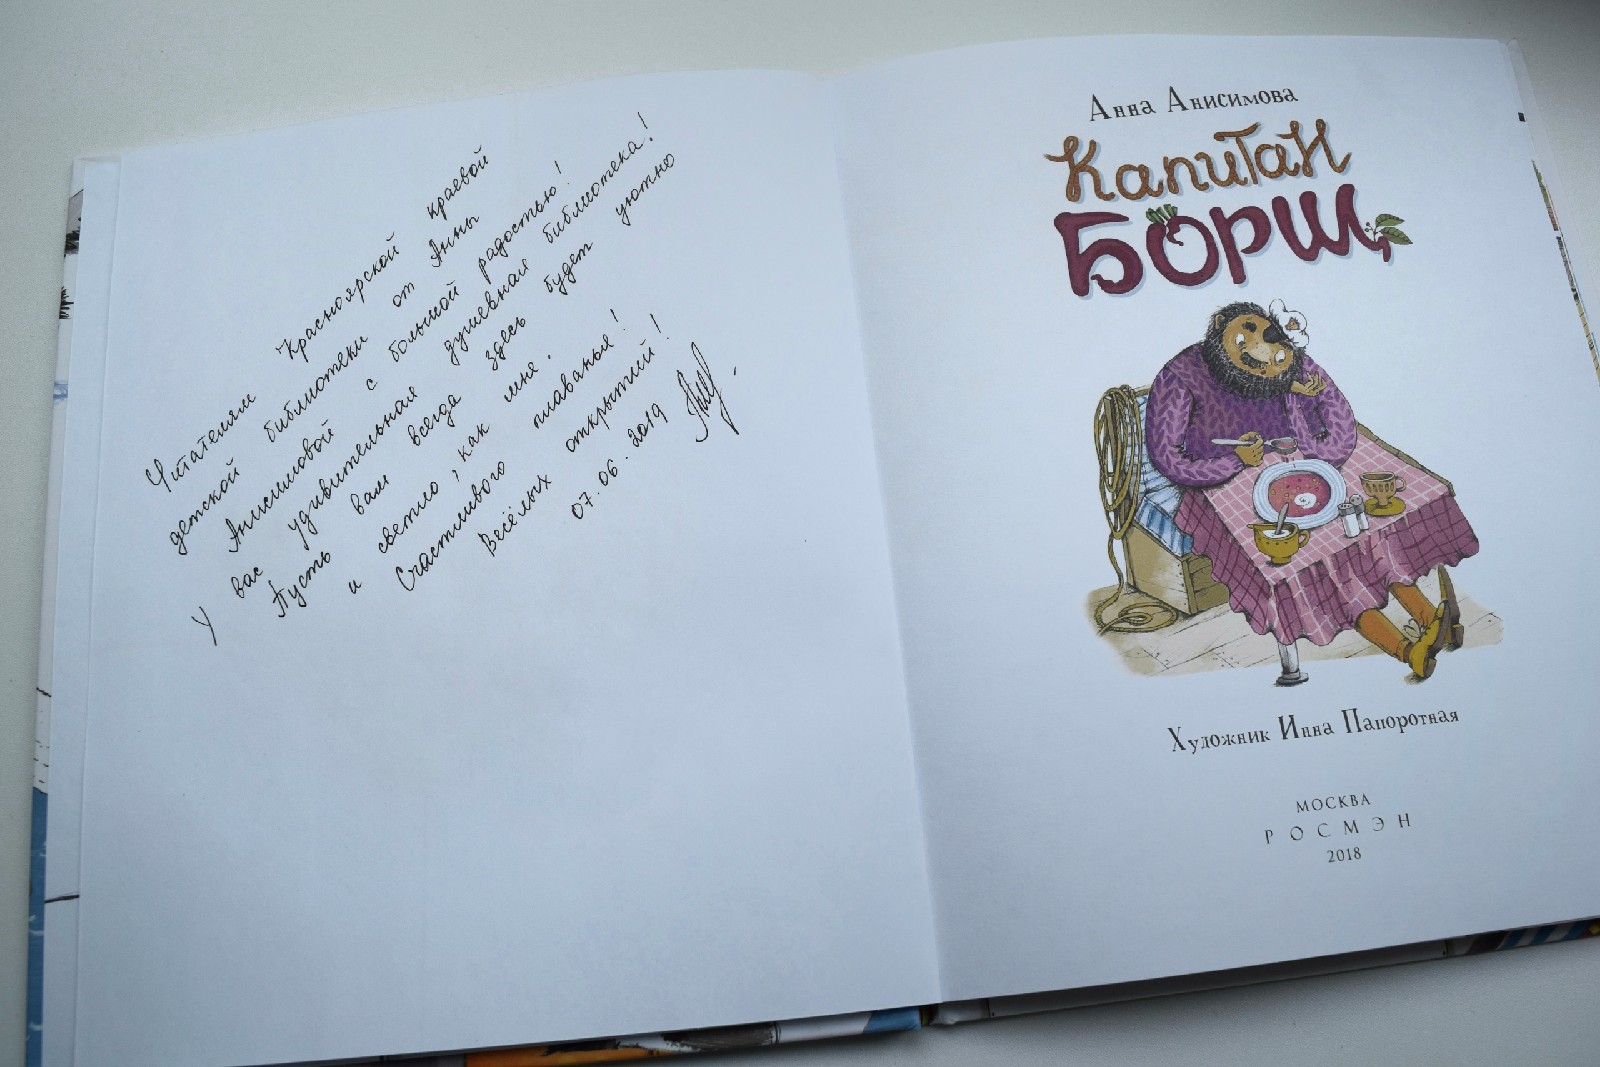 Читателям Красноярской краевой
детской библиотеки от Анны
Анисимовой с большой радостью!
У вас удивительная душевная библиотека!
Пусть вам всегда здесь будет уютно
и светло, как мне.
Счастливого плаванья!
Весёлых открытий!
07.06.2019
Анна Анисимова
Капитан
Борщ
Художник Инна Папоротная
МОСКВА
РОСМЭН
2018